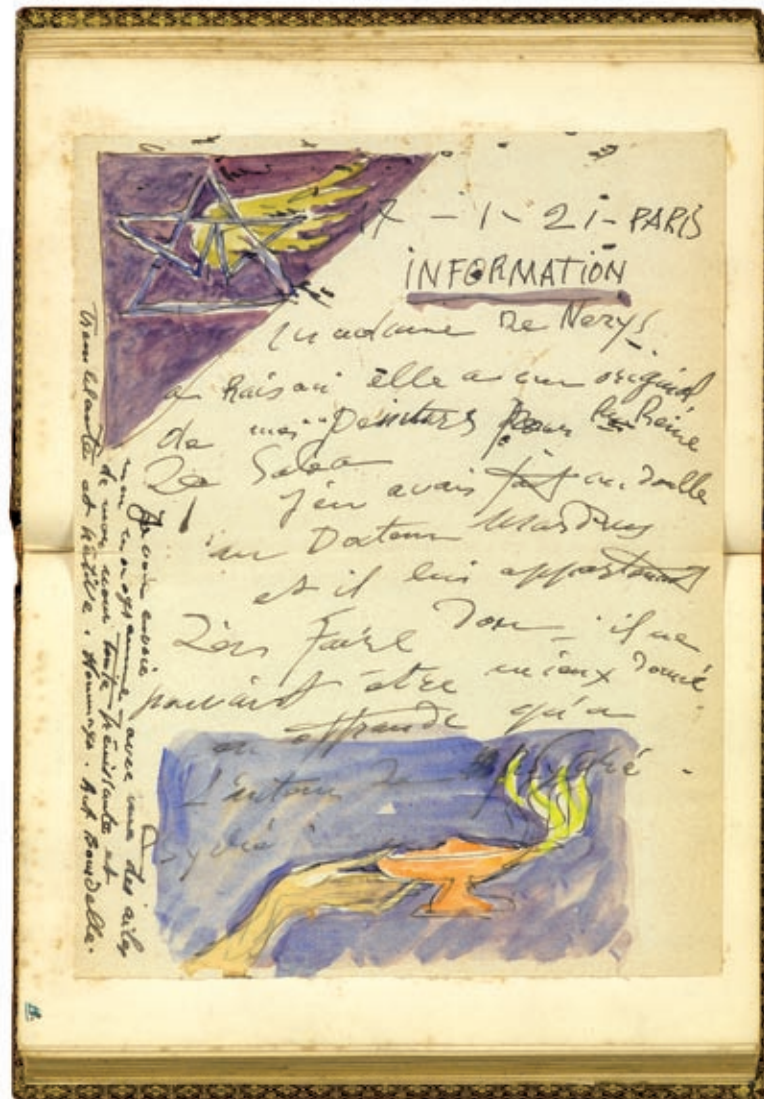 17 - 1 - 21 - PARIS
INFORMATION
Madame de Nerys
a raison elle a un original
de mes peintures pour la Reine
De Saba
j'en avais fait un double
au Docteur Mardrus
et il lui appartenait
D'en Faire Don - il ne
pouvait être mieux donné
en offrande qu'a
L'auteur de
Psyché
Je vous envoie
mon monogramme avec une des ailes
de mon toute frémissante et
tremblante et hâtive. Hommage. Ant Bourdelle.